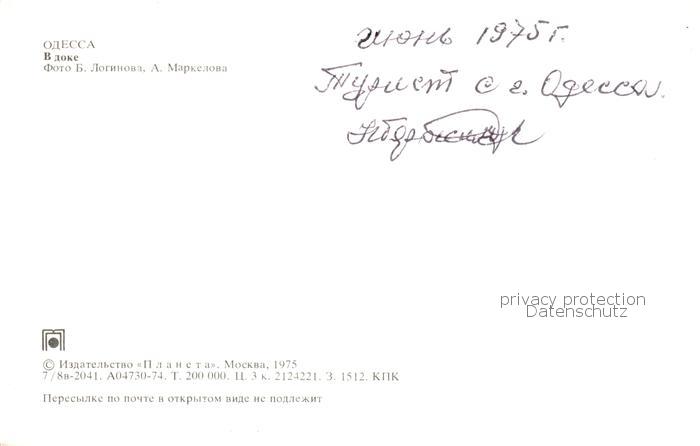 ОДЕССА
В доке
Фото Б. Логинова, А. Маркелова
июнь 1975 г.
Турист с г. Одесса.
privacy protection
Datenschutz
© Издательство «Планета». Москва, 1975
7/8в-2041. А04730-74. Т. 200 000. Ц. 3 к. 2124221. З. 1512. КПК
Пересылке по почте в открытом виде не подлежит